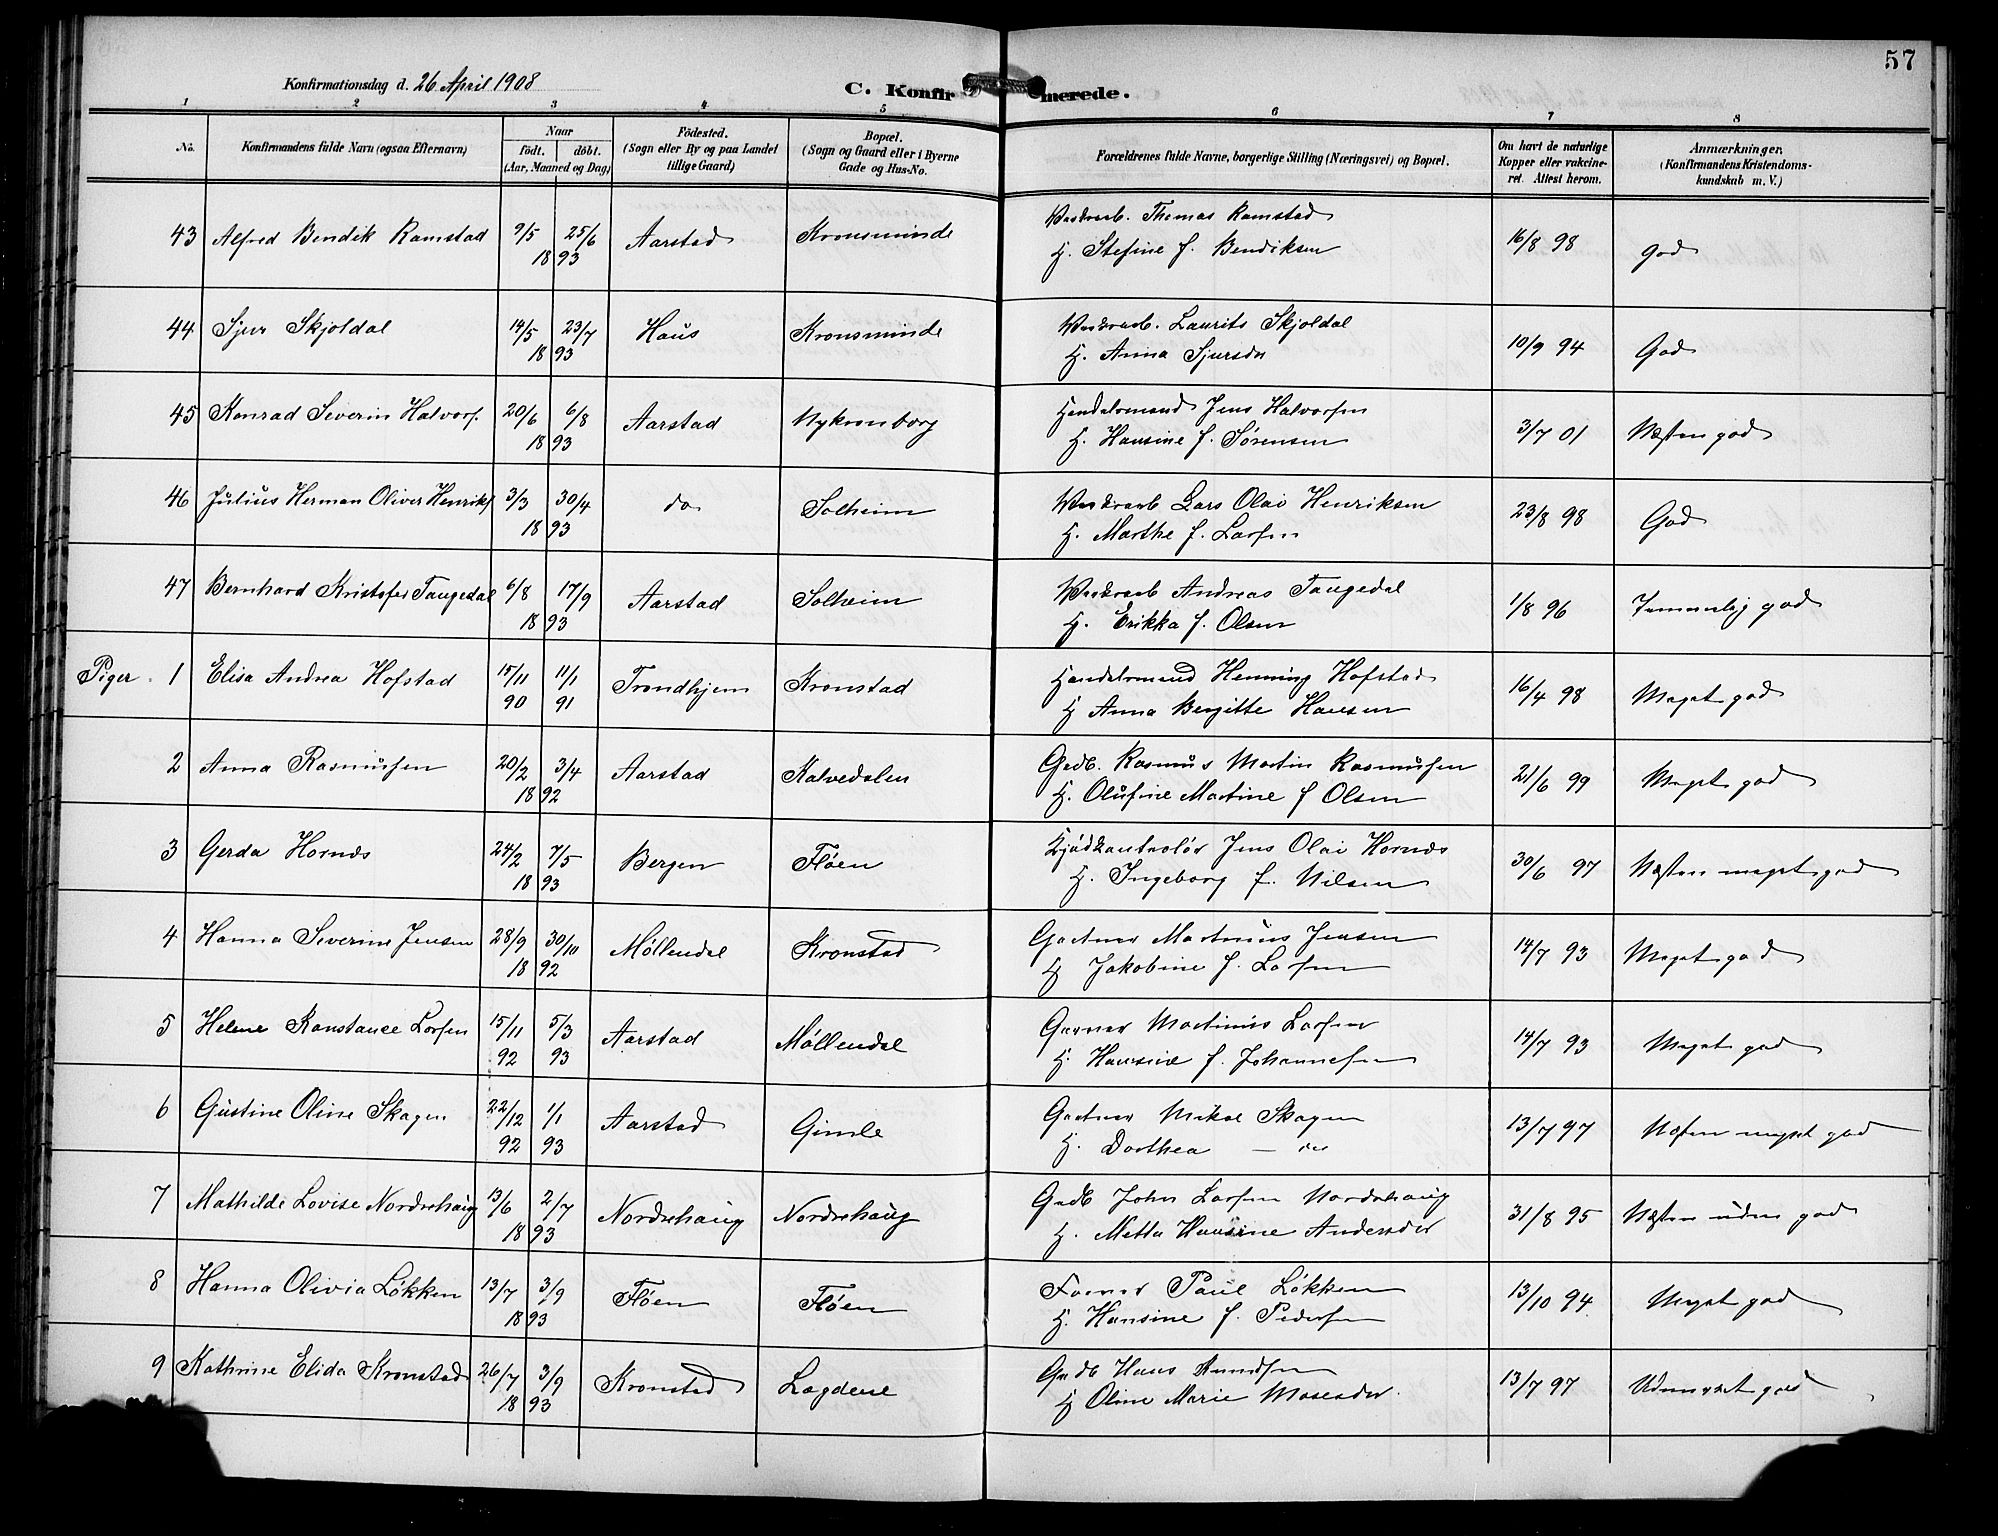 57
Konfirmationsdag d. 26 April 1908
C. Konfirmerede.
1 2 3 4 5 6 7 8
No. Konfirmandens fulde Navn (ogsaa Efternavn) Naar födt. döbt. (Aar, Maaned og Dag) Födested. (Sogn eller By og paa Landet tillige Gaard) Bopæl. (Sogn og Gaard eller i Byerne Gade og Hus-No. Forældrenes fulde Navne, borgerlige Stilling (Næringsvei) og Bopæl. Om havt de naturlige Kopper eller vakcineret. Attest herom. Anmærkninger. (Konfirmandens Kristendomskundskab m. V.)
43 Alfred Bendik Ramstad 9/5 25/6 1893 Aarstad Kronsminde Thomas Ramstad
H. Stefine f. Bendiksen 16/8 98 God
44 Sjur Skjoldal 14/5 23/7 1893 Haus Kronsminde Laurits Skjoldal
H. Anna Sjursdr 10/9 94 God
45 Konrad Severin Halvors. 20/6 6/8 1893 Aarstad Nykronborg Handelsmand Jens Halvorsen
H. Hansine f. Sørensen 3/7 01 Næsten god
46 Julius Herman Oliver Henriks 3/3 30/4 1893 do Solheim Lars Olai Henriksen
H. Marthe f. Larsen 23/8 98 God
47 Bernhard Kristofer Taugedal 6/8 17/9 1893 Aarstad Solheim Andreas Taugedal
H. Erikka f. Olsen 1/8 96 Temmelig god
Piger. 1 Elisa Andrea Hofstad 15/11 90 11/1 91 Trondhjem Kronstad Handelsmand Henning Hofstad
H Anna Bergitte Hansen 16/4 98 Meget god
2 Anna Rasmussen 20/2 3/4 1892 Aarstad Kalvedalen Gadb. Rasmus Martin Rasmussen
H. Olufine Martine f Olsen 21/6 99 Meget god
3 Gerda Hornæs 24/2 7/5 1893 Bergen Fløen Kjødkontrolør Jens Olai Hornæs
H. Ingeborg f. Nilsen 30/6 97 Næsten meget god
4 Hanna Severine Jensen 28/9 30/10 1892 Møllendal Kronstad Gartner Martinus Jensen
H Jakobine f. Larsen 14/7 93 Meget god
5 Helene Konstance Larsen 15/11 92 5/3 93 Aarstad Møllendal Martinus Larsen
H. Hansine f. Johannesen 14/7 93 Meget god
6 Gustine Oline Skagen 22/12 92 1/1 93 Aarstad Gimle Gartner Mikal Skagen
H. Dorthea — 13/7 97 Næsten meget god
7 Mathilde Lovise Nordrehaug 13/6 2/7 1893 Nordrehaug Nordrehaug Gadb John Larsen Nordrehaug
H. Metta Hansine Andersdr 31/8 95 Næsten uden god
8 Hanna Olivia Løkken 13/7 3/9 1893 Fløen Fløen Paul Løkken
H. Hansine f. Pedersen 13/10 94 Meget god
9 Kathrine Elida Kronstad 26/7 3/9 1893 Kronstad Lægdene Gadb Hans Knudsen
H Oline Marie Monsdr 13/7 97 Udmerket god